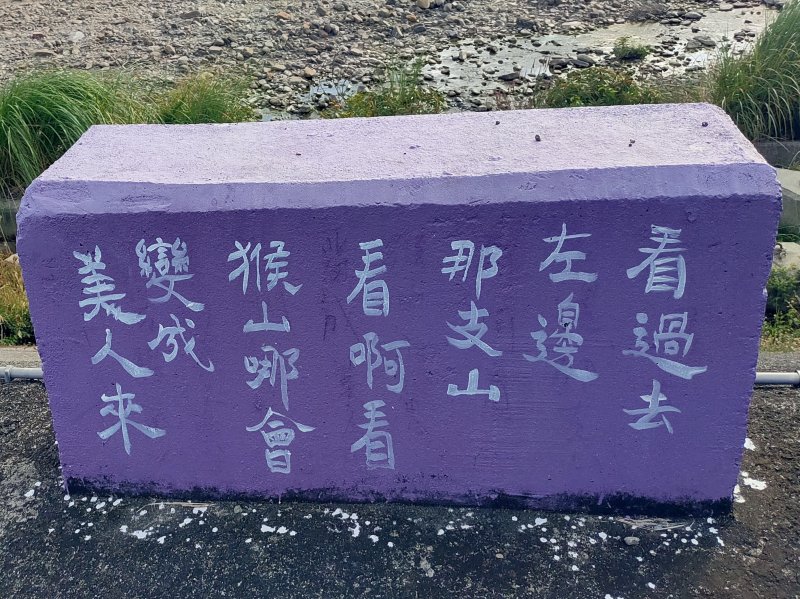 看過去
左邊
那支山
看啊看
猴山哪會
變成
美人來